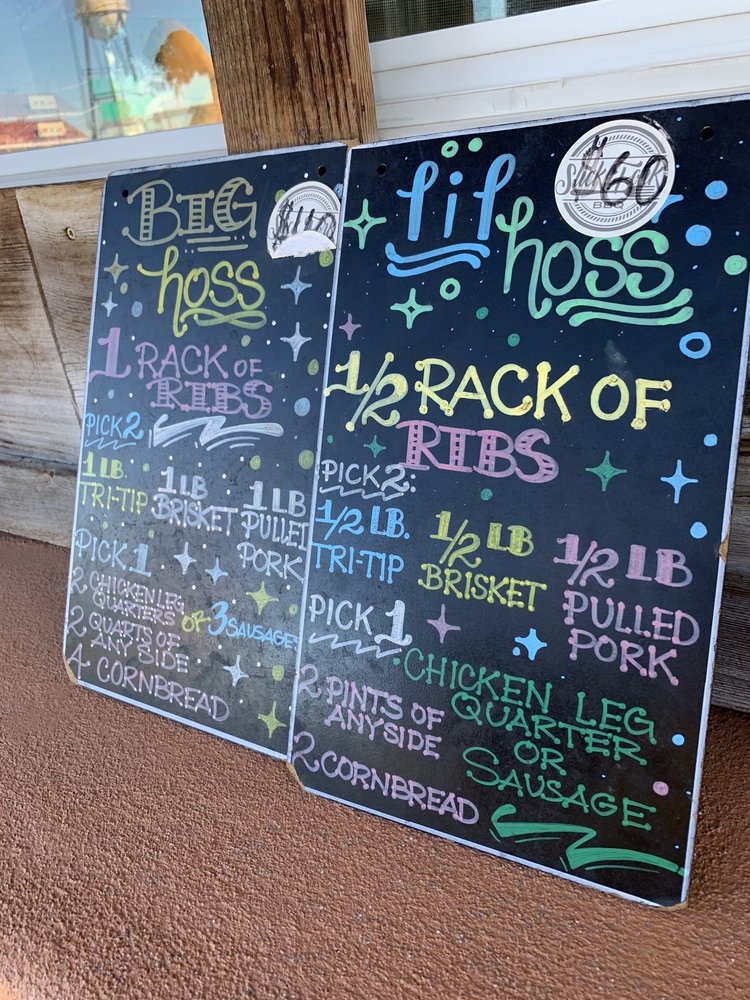 BIG
hoss
1 RACK OF
RIBS
PICK 2
1 LB.
TRI-TIP
1 LB
BRISKET
1 LB
PULLED
PORK
PICK 1
2 CHICKEN LEG
QUARTERS OR 3 SAUSAGES
2 QUARTS OF
ANY SIDE
4 CORNBREAD
$60
BBQ
lil
hoss
1/2 RACK OF
RIBS
PICK 2:
1/2 LB.
TRI-TIP
1/2 LB
BRISKET
1/2 LB
PULLED
PORK
PICK 1
CHICKEN LEG
QUARTER
OR
SAUSAGE
2 PINTS OF
ANY SIDE
2 CORNBREAD